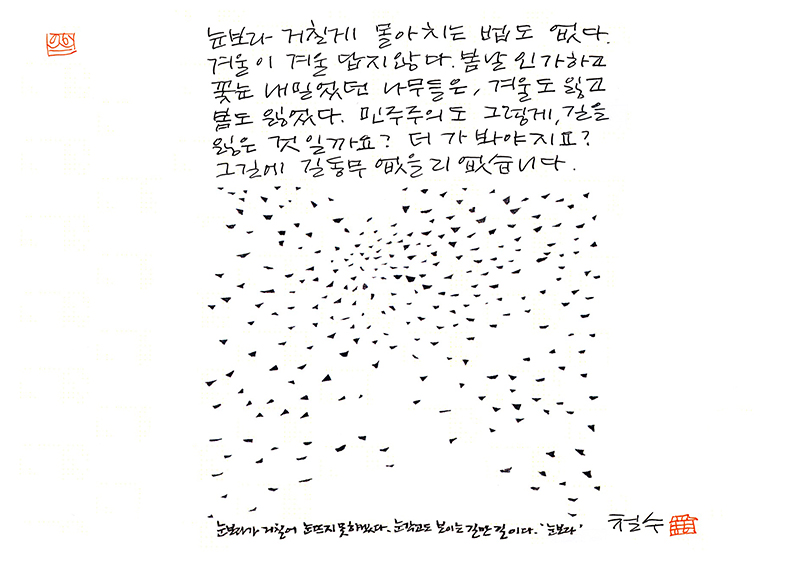 눈보라 거칠게 몰아치는 법도 없다.
겨울이 겨울 답지않다. 봄날 인가하고
꽃눈 내밀었던 나무들은, 겨울도 잃고
봄도 잃었다. 민주주의도 그렇게, 길을
잃은 것일까요? 더 가 봐야지요?
그길에 길동무 없을리 없습니다.
'눈보라가 거칠어 눈뜨지 못하였다. 눈감고도 보이는 길만 길이다. '눈보라'
철수